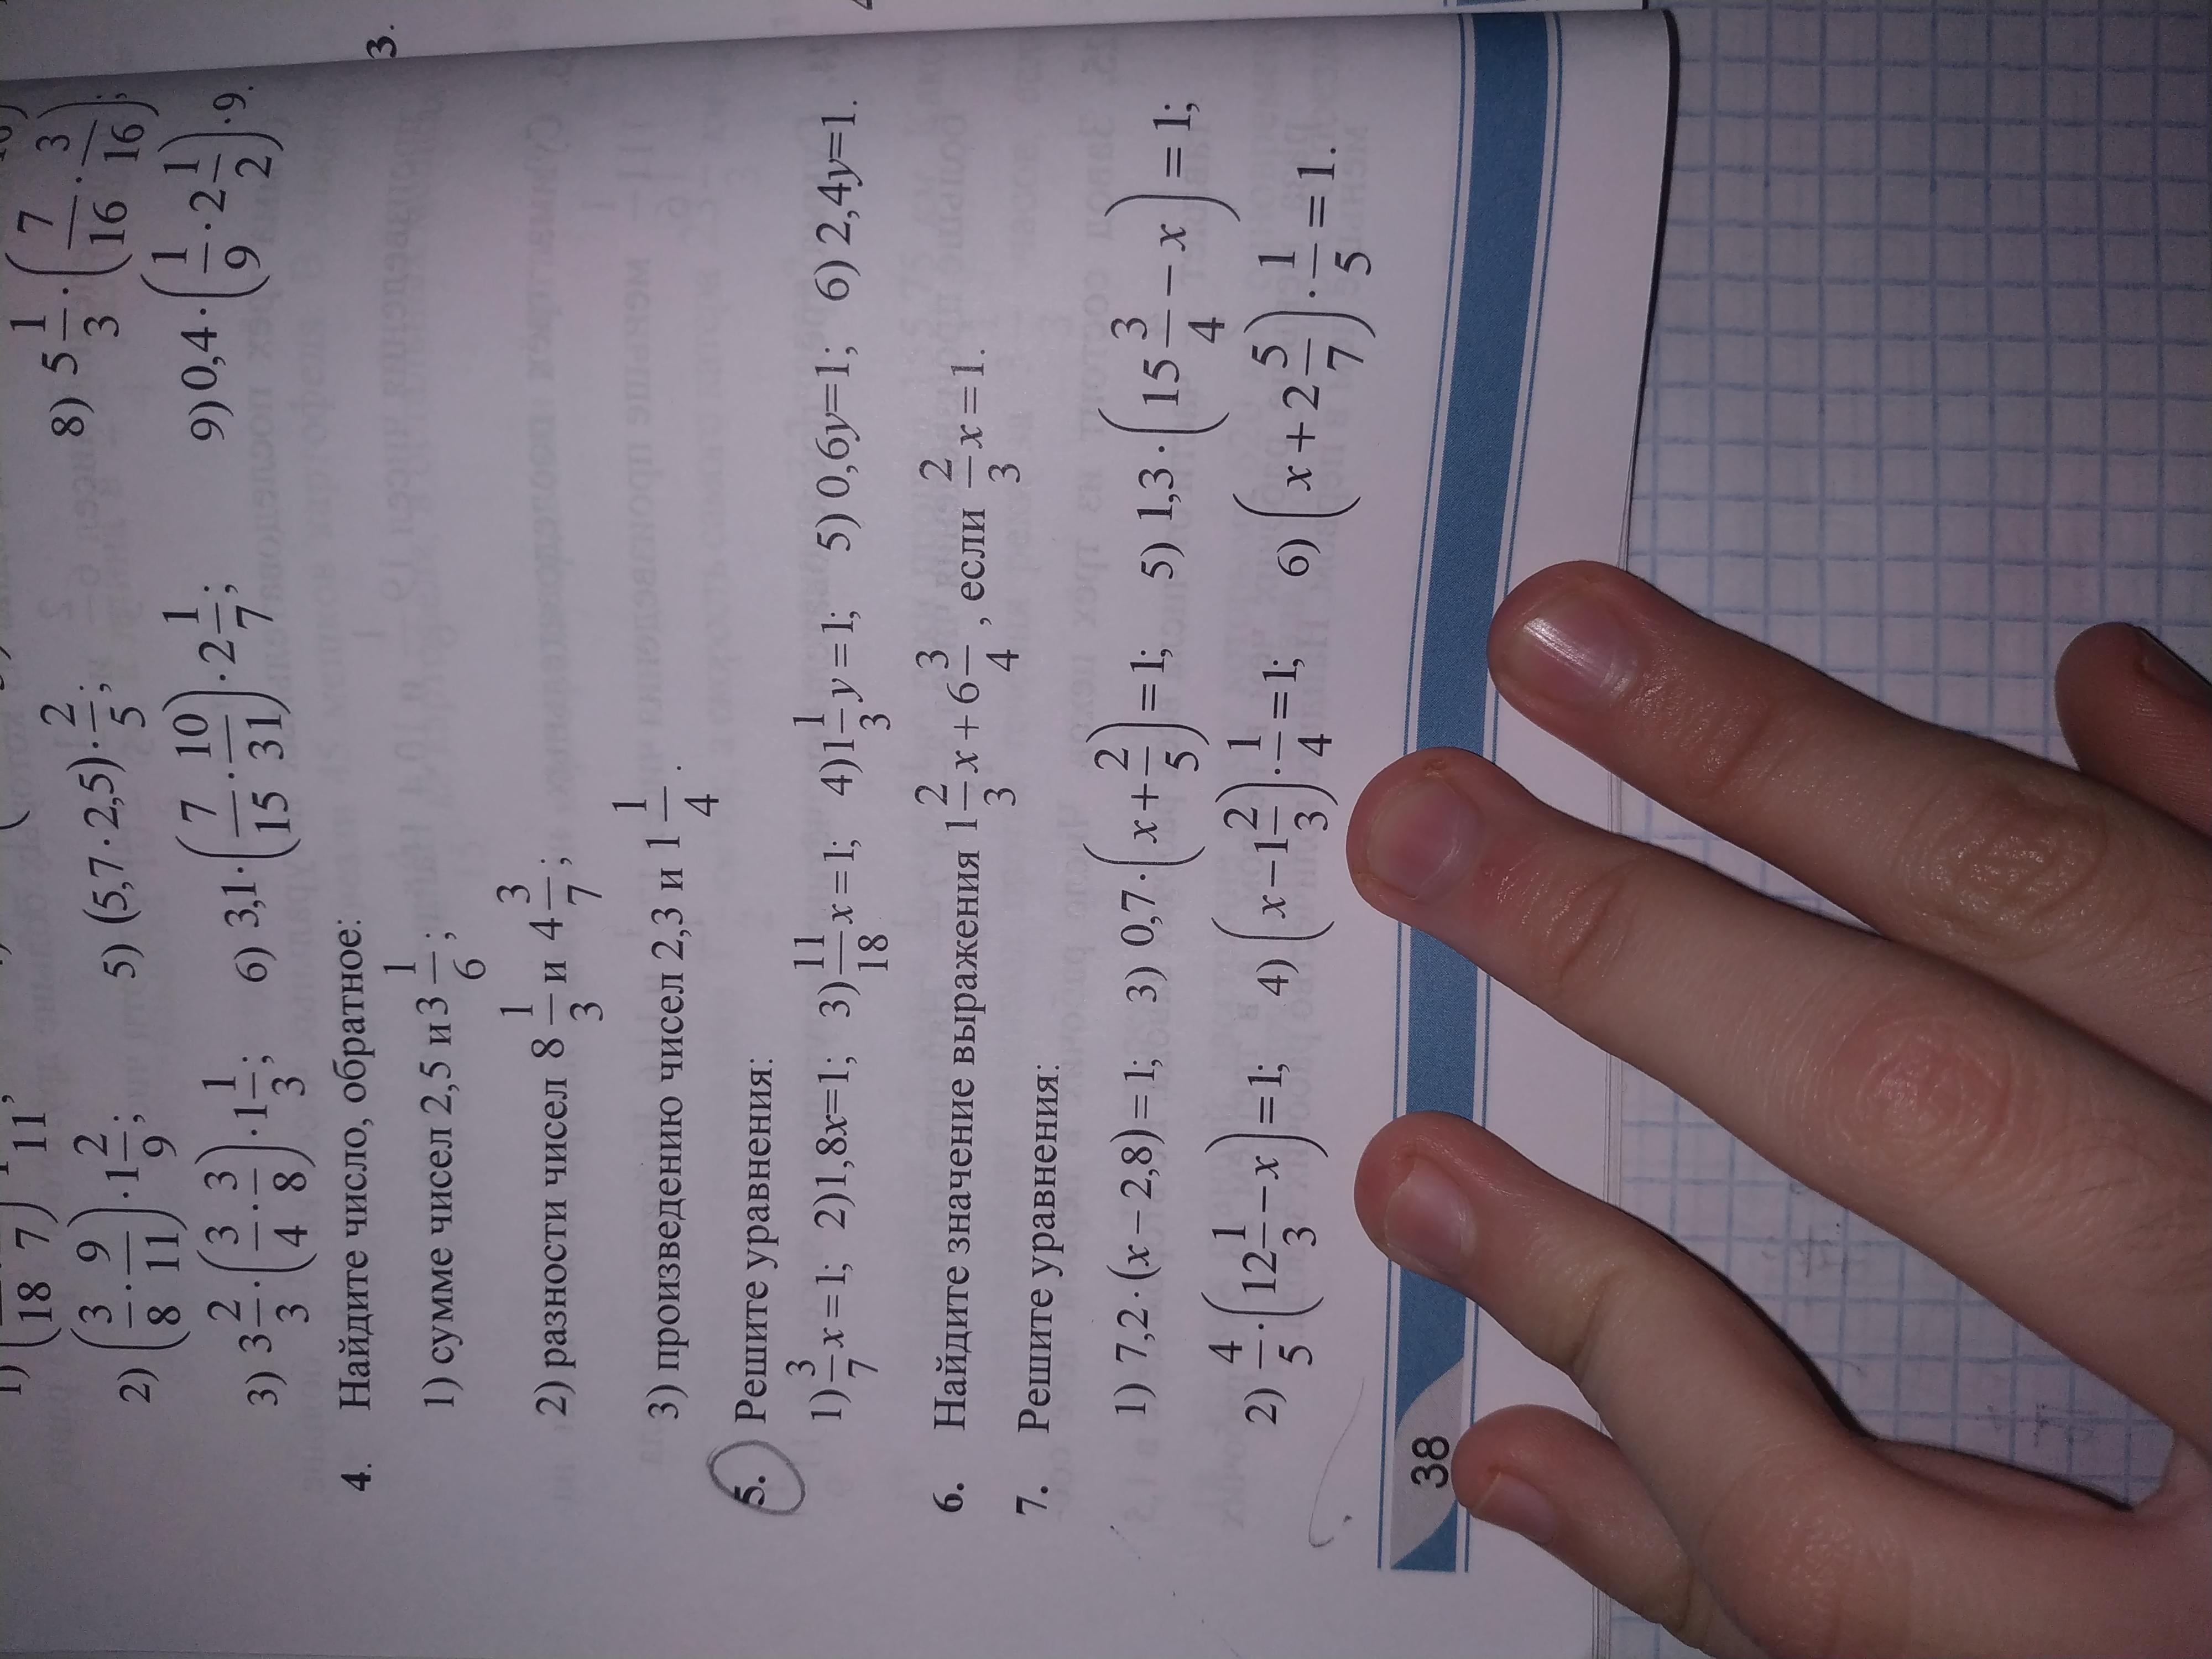 1) (18 7) 11,
8) 5 1/3 · (7/16 : 3/16);
2) (3/8 · 9/11) · 1 2/9; 5) (5,7 · 2,5) · 2/5; 9) 0,4 · (1/9 · 2 1/2) · 9.
3) 3 2/3 · (3/4 · 3/8) · 1 1/3; 6) 3,1 · (7/15 · 10/31) · 2 1/7;
3.
4. Найдите число, обратное:
1) сумме чисел 2,5 и 3 1/6;
2) разности чисел 8 1/3 и 4 3/7;
3) произведению чисел 2,3 и 1 1/4.
5. Решите уравнения:
1) 3/7 x = 1; 2) 1,8x=1; 3) 11/18 x=1; 4) 1 1/3 y = 1; 5) 0,6y=1; 6) 2,4y=1.
6. Найдите значение выражения 1 2/3 x + 6 3/4, если 2/3 x = 1.
7. Решите уравнения:
1) 7,2 · (x – 2,8) = 1; 3) 0,7 · (x + 2/5) = 1; 5) 1,3 · (15 3/4 – x) = 1;
2) 4/5 · (12 1/3 – x) = 1; 4) (x – 1 2/3) · 1/4 = 1; 6) (x + 2 5/7) · 1/5 = 1.
38